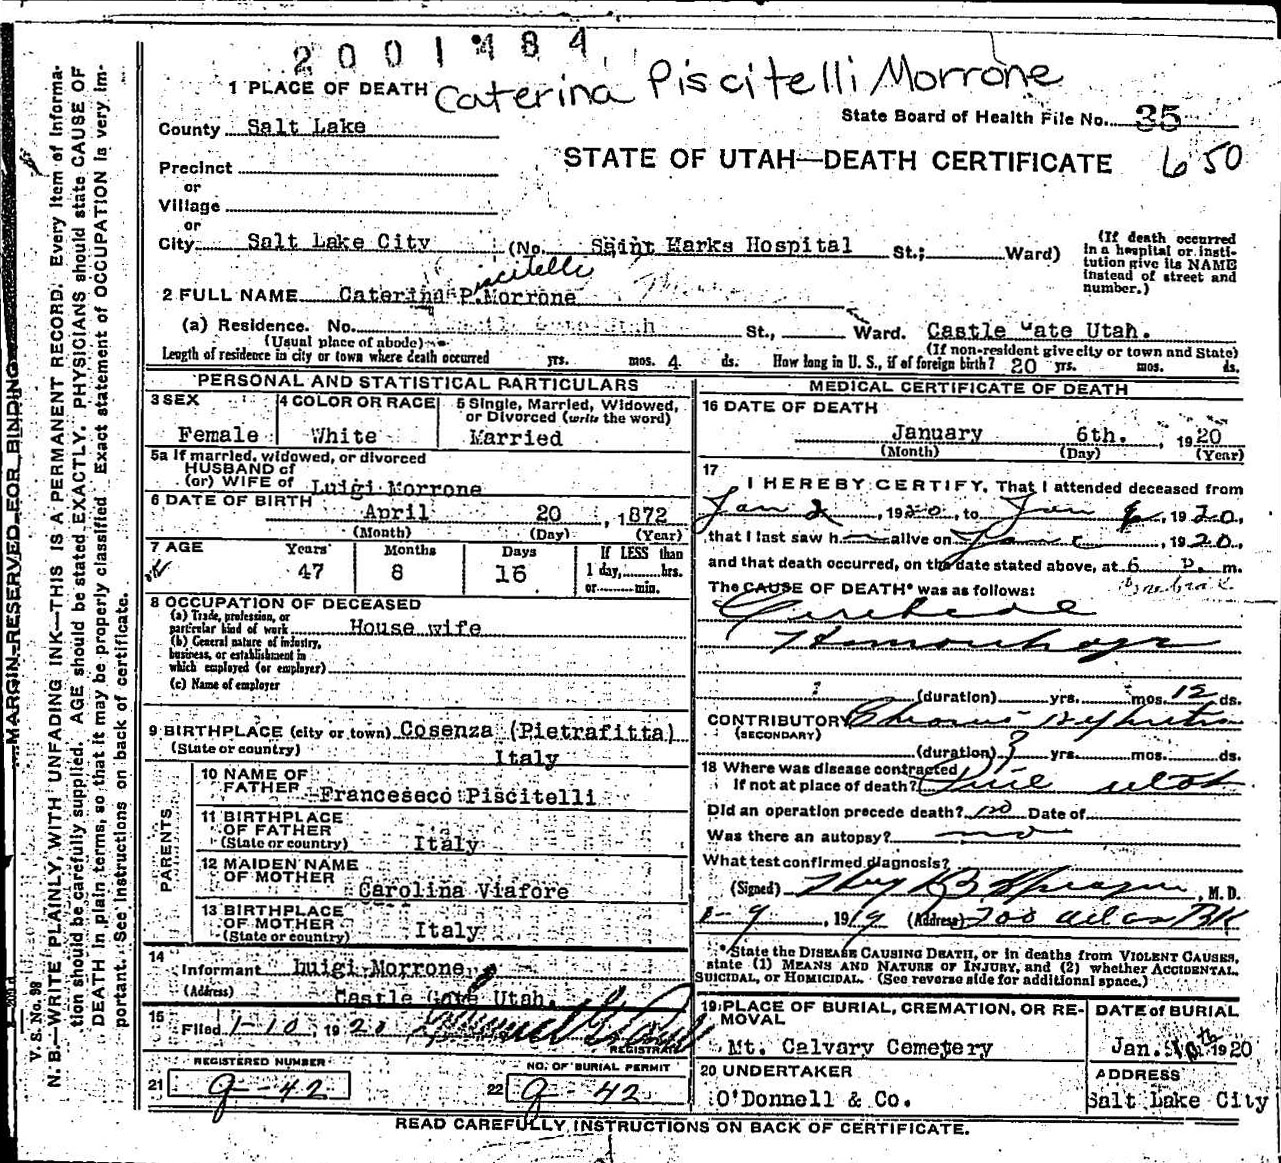 2001484
Caterina Piscitelli Morrone
1 PLACE OF DEATH
State Board of Health File No. 35
County Salt Lake
STATE OF UTAH—DEATH CERTIFICATE 650
Precinct
or
Village
or
City Salt Lake City (No. Saint Marks Hospital St.; Ward)
(If death occurred in a hospital or institution give its NAME instead of street and number.)
Piscitelli
2 FULL NAME Caterina P. Morrone
(a) Residence. No. St., Ward. Castle Gate Utah.
(Usual place of abode) (If non-resident give city or town and State)
Length of residence in city or town where death occurred yrs. mos. 4 ds. How long in U. S., if of foreign birth? 20 yrs. mos. ds.
PERSONAL AND STATISTICAL PARTICULARS
3 SEX Female
4 COLOR OR RACE White
5 Single, Married, Widowed, or Divorced (write the word) Married
5a If married, widowed, or divorced
HUSBAND of
(or) WIFE of Luigi Morrone
6 DATE OF BIRTH April 20, 1872
(Month) (Day) (Year)
7 AGE Years 47 Months 8 Days 16 If LESS than 1 day, hrs. or min.
8 OCCUPATION OF DECEASED
(a) Trade, profession, or
particular kind of work House wife
(b) General nature of industry,
business, or establishment in
which employed (or employer)
(c) Name of employer
9 BIRTHPLACE (city or town) Cosenza (Pietrafitta)
(State or country) Italy
PARENTS
10 NAME OF FATHER Franceseco Piscitelli
11 BIRTHPLACE OF FATHER (State or country) Italy
12 MAIDEN NAME OF MOTHER Carolina Viafore
13 BIRTHPLACE OF MOTHER (State or country) Italy
14 Informant Luigi Morrone
(Address) Castle Gate Utah.
15 Filed 1-10, 1920
REGISTRAR
REGISTERED NUMBER
21 9-42
NO. OF BURIAL PERMIT
22 9-42
MEDICAL CERTIFICATE OF DEATH
16 DATE OF DEATH
January 6th., 1920
(Month) (Day) (Year)
17 I HEREBY CERTIFY, That I attended deceased from
Jan 2, 1920, to Jan 6, 1920,
that I last saw h alive on Jan 6, 1920,
and that death occurred, on the date stated above, at 6 P. m.
The CAUSE OF DEATH* was as follows:
Cerebral
Hemorrhage
(duration) yrs. mos. 12 ds.
CONTRIBUTORY Chronic Nephritis
(SECONDARY)
(duration) ? yrs. mos. ds.
18 Where was disease contracted
If not at place of death? Utah
Did an operation precede death? no Date of
Was there an autopsy? no
What test confirmed diagnosis?
(Signed) Sprague, M. D.
1-9, 1919 (Address) 200 Atlas Bk
*State the DISEASE CAUSING DEATH, or in deaths from VIOLENT CAUSES, state (1) MEANS AND NATURE OF INJURY, and (2) whether ACCIDENTAL, SUICIDAL, or HOMICIDAL. (See reverse side for additional space.)
19 PLACE OF BURIAL, CREMATION, OR REMOVAL
Mt. Calvary Cemetery
DATE of BURIAL
Jan. 10th 1920
20 UNDERTAKER
O'Donnell & Co.
ADDRESS
Salt Lake City
READ CAREFULLY INSTRUCTIONS ON BACK OF CERTIFICATE.
MARGIN RESERVED FOR BINDING
V. S. No. 98
N. B.—WRITE PLAINLY, WITH UNFADING INK—THIS IS A PERMANENT RECORD. Every item of information should be carefully supplied. AGE should be stated EXACTLY. PHYSICIANS should state CAUSE OF DEATH in plain terms, so that it may be properly classified. Exact statement of OCCUPATION is very important. See instructions on back of certificate.